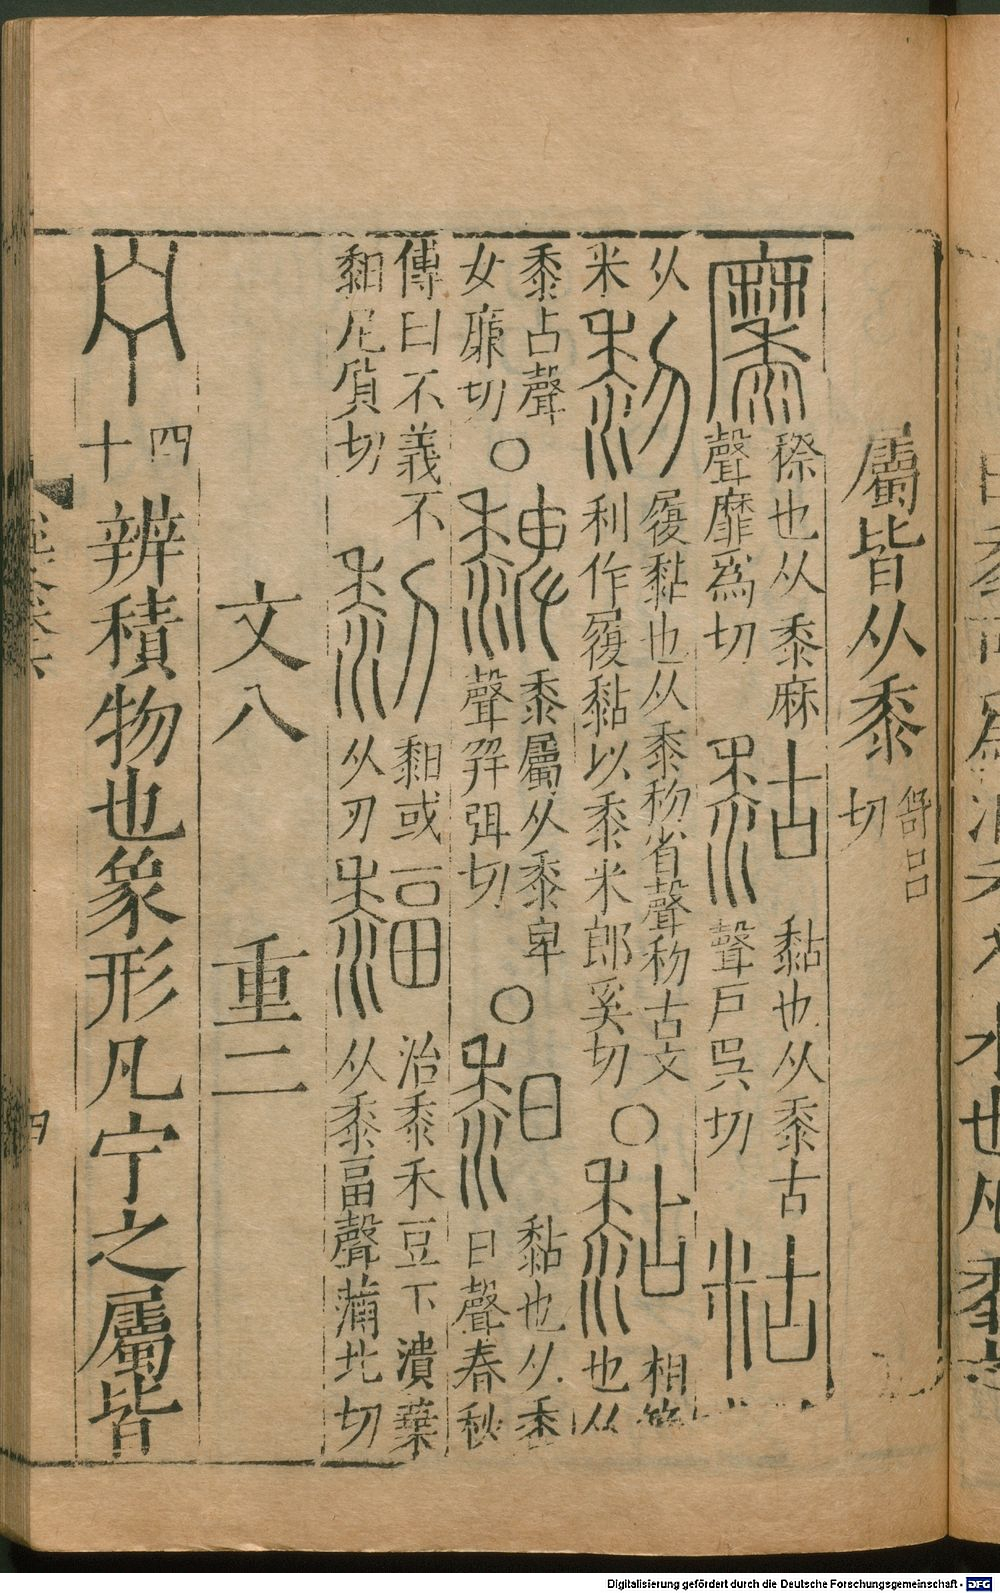 屬皆从黍 舒呂切
穄也从黍麻聲靡爲切 黏也从黍古聲戶吳切
从米 履黏也从黍𥝢省聲𥝢古文利作履黏以黍米郎奚切〇 相也从
黍占聲女廉切〇 黍屬从黍卑聲弭切〇 黏也从黍日聲春秋
傳曰不義不䵒尼質切 䵒或从刃 治黍禾豆下潰葉从黍畐聲蒲北切
文八 重二
四十 辨積物也象形凡宁之屬皆
Digitalisierung gefördert durch die Deutsche Forschungsgemeinschaft - DFG